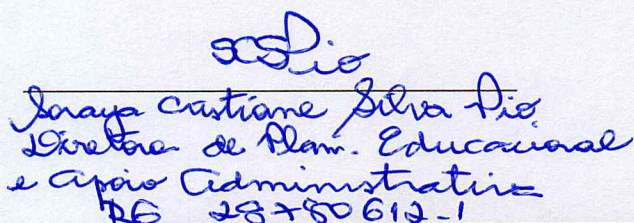 SCSPio
Soraya Cristiane Silva Pio
Diretora de Plan. Educacional
e Apoio Administrativo
RG 28780612-1